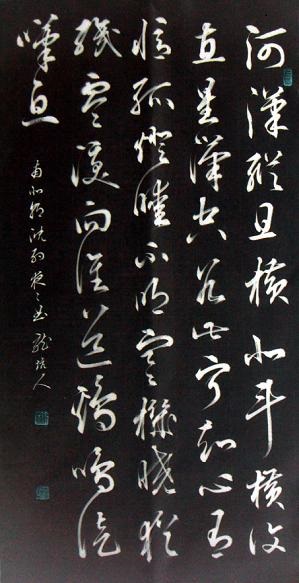 河漢縱且橫北斗橫復
直星漢空若此寧知心有
憶孤燈曖不明寒機曉猶
織零淚向誰道鷄鳴徒
嘆息
南北朝沈約夜々曲